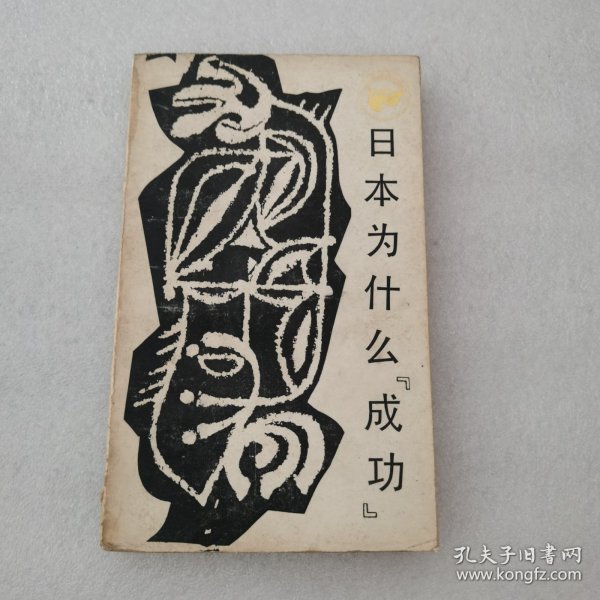 日本为什么『成功』
孔夫子旧书网
www.kongfz.com